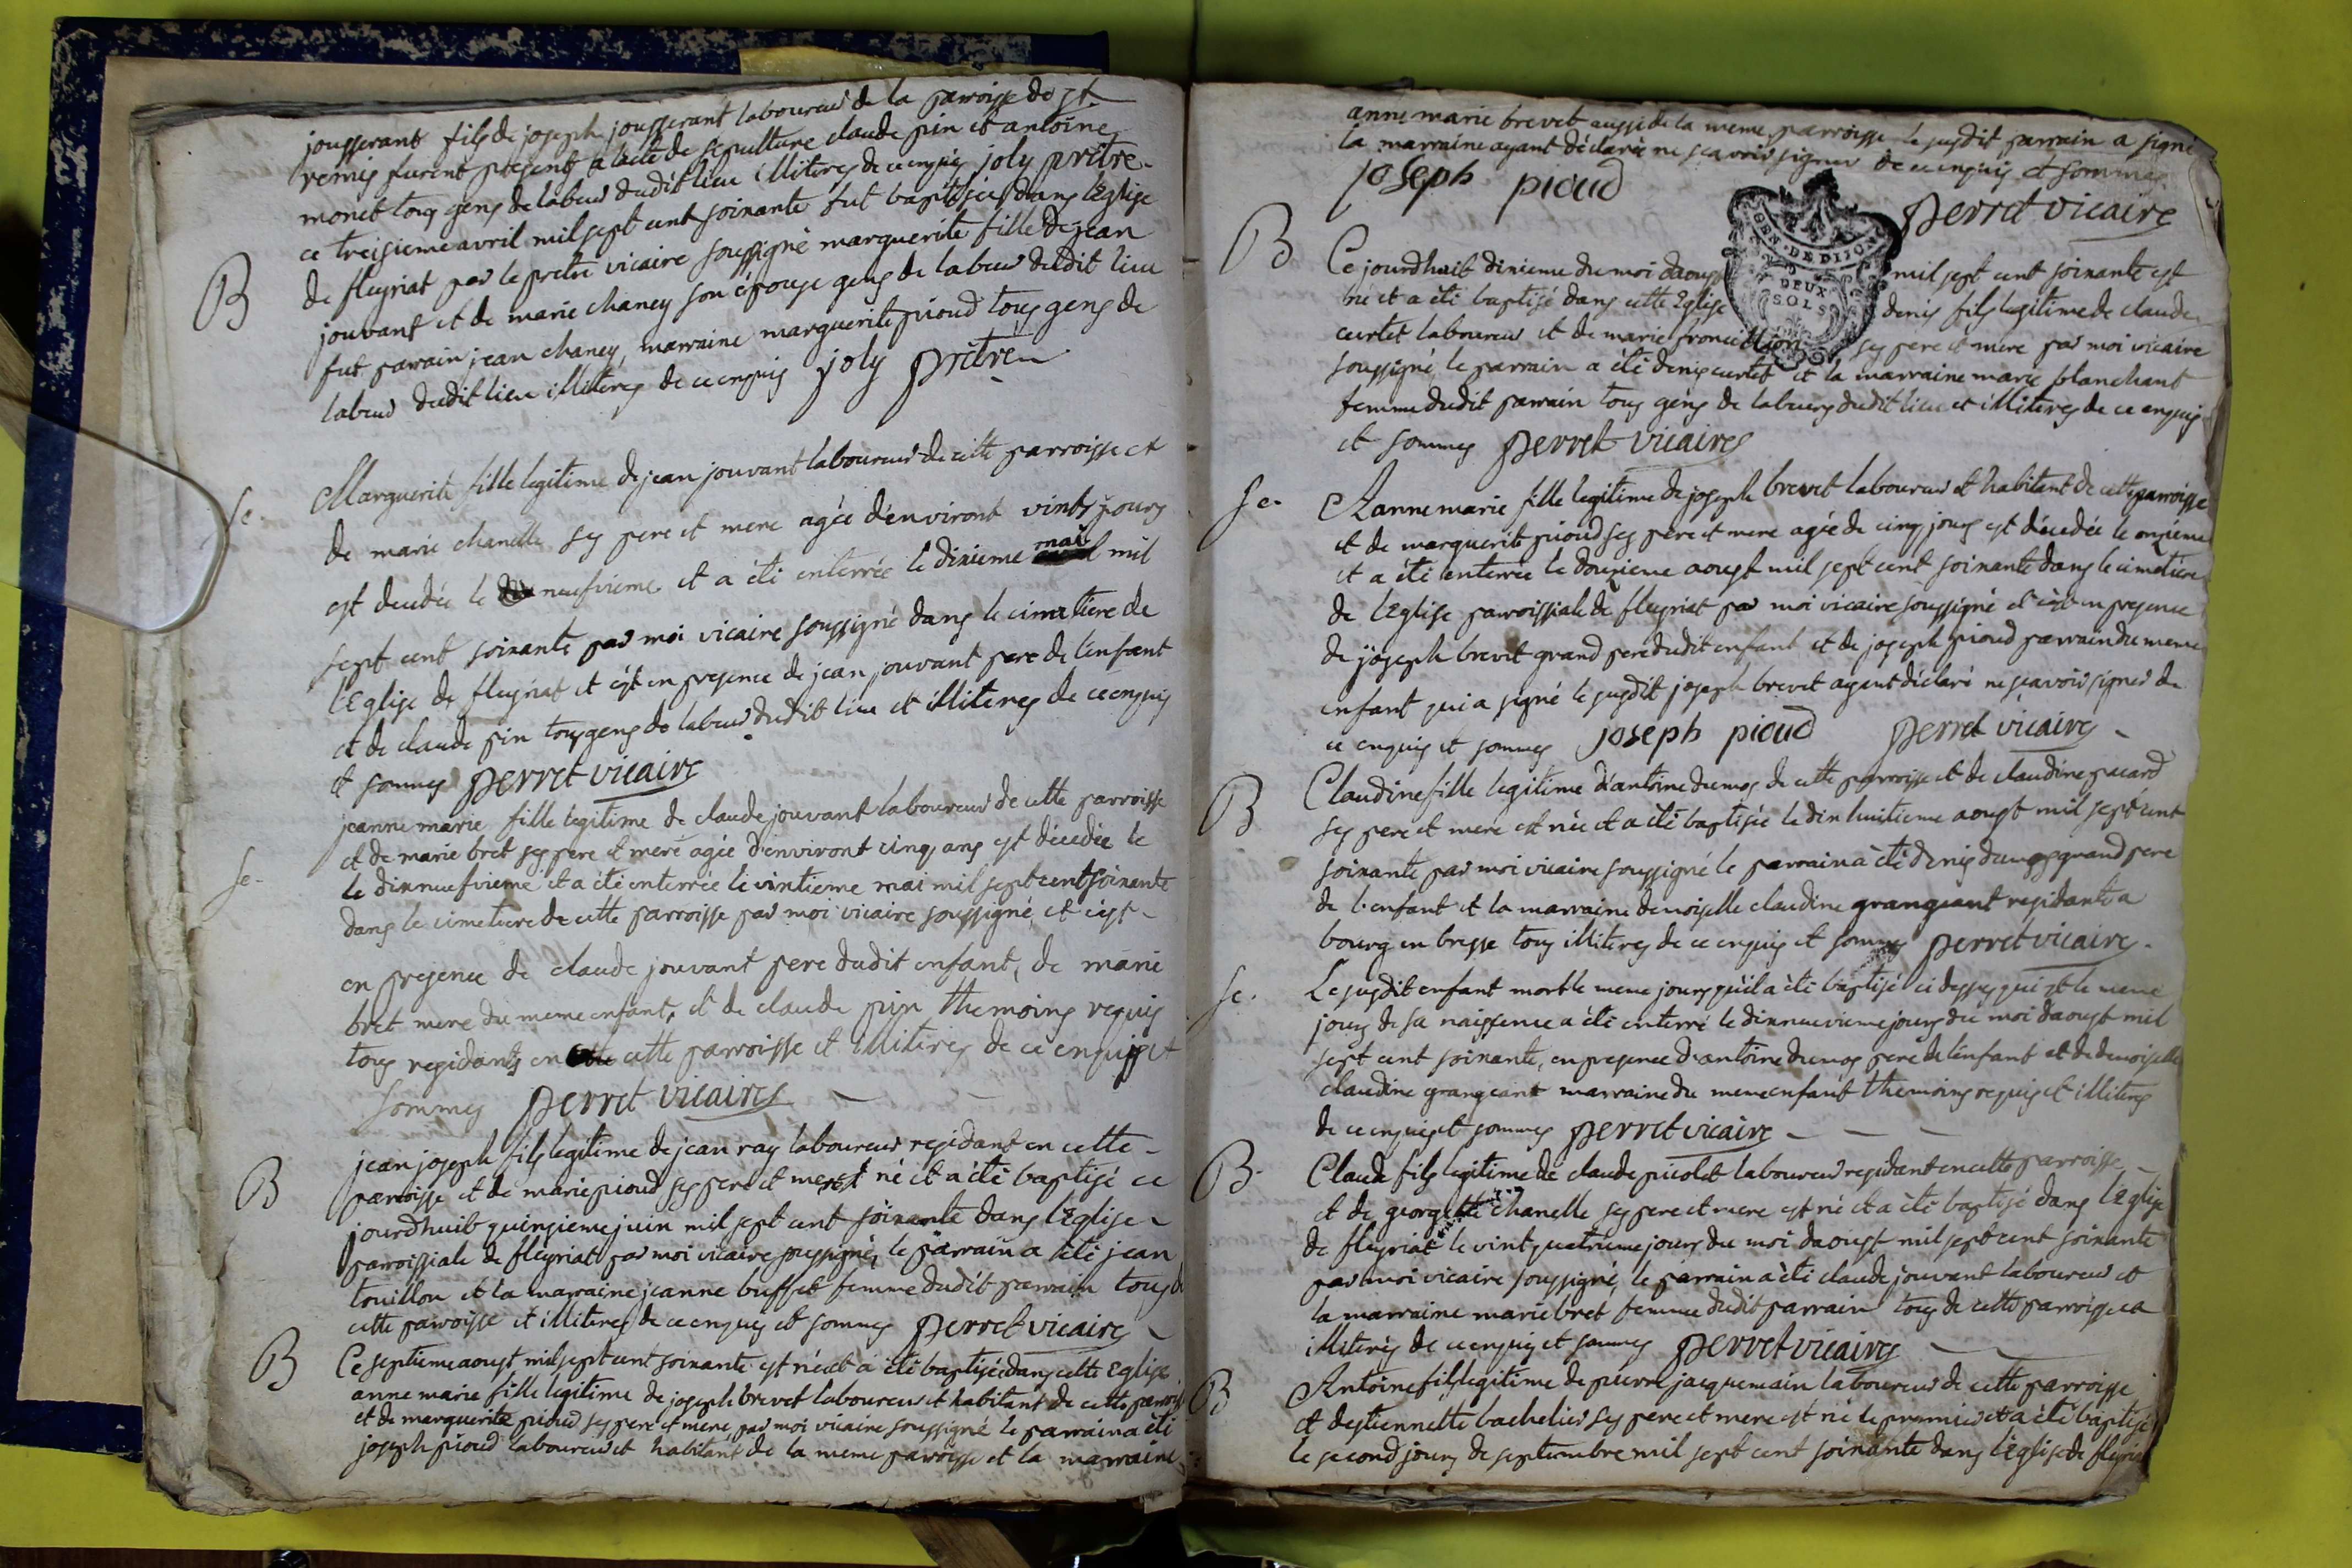 jousserant fils de joseph jousserant laboureur de la paroisse de st
remis furent presents a lacte de sepulture claude pin et antoine
monet tous gens de labeur dudit lieu illiteres de ce enquis joly prêtre
B
ce treisieme avril mil sept cent soixante fut baptisée dans l'Eglise
de fleyriat par le prêtre vicaire soussigné marguerite fille de jean
jouvant et de marie chaney son épouse gens de labeur dudit lieu
fut parrain jean chaney, marraine marguerite pioud tous gens de
labeur dudit lieu illiteres de ce enquis joly prêtre
Se.
Marguerite fille legitime de jean jouvant laboureur de cette parroisse et
de marie chanelle ses pere et mere agée d'environt vints jours
est decedée le neufvieme et a été enterrée le dixieme mai mil
sept cent soixante par moi vicaire soussigné dans le cimetiere de
l'Eglise de fleyriat et c'est en presence de jean jouvant pere de l'enfant
et de claude pin tous gens de labeur dudit lieu et illiteres de ce enquis
et sommes perret vicaire
Se.
jeanne marie fille legitime de claude jouvant laboureur de cette parroisse
et de marie bret ses pere et mere agée d'environt cinq ans est décedée le
le dixneufvieme et a été enterrée le vintieme mai mil sept cent soixante
dans le cimetiere de cette parroisse par moi vicaire soussigné, et c'est
en presence de claude jouvant pere dudit enfant, de marie
bret mere du meme enfant, et de claude pin themoins requis
tous residants en cette parroisse et illiteres de ce enquis et
sommes perret vicaire
B
jean joseph fils legitime de jean ray laboureur residant en cette
parroisse et de marie pioud ses pere et mere est né et a été baptisé ce
jourdhuit quinsieme juin mil sept cent soixante dans l'Eglise
parroissiale de fleyriat par moi vicaire soussigné, le parrain a été jean
touillon et la marraine jeanne buffet femme dudit parrain tous de
cette parroisse et illiteres de ce enquis et sommes perret vicaire
B
Ce septieme aoust mil sept cent soixante est née et a été baptisée dans cette Eglise
anne marie fille legitime de joseph brevet laboureur et habitant de cette parroisse
et de marguerite pioud ses pere et mere, par moi vicaire soussigné le parrain a été
joseph pioud laboureur et habitant de la meme parroisse et la marraine
anne marie brevet aussi de la meme parroisse le susdit parrain a signé
la marraine ayant déclaré ne scavoir signer de ce enquis et sommes
joseph pioud
perret vicaire
GEN. DE DIJON
DEUX
SOLS
B
Ce jourdhuit dixieme du moi daoust mil sept cent soixante est
né et a été baptisé dans cette Eglise denis fils legitime de claude
curtet laboureur et de marie ses pere et mere par moi vicaire
soussigné le parrain a été denis curtet et la marraine marie blanchant
femme dudit parrain tous gens de labeurs dudit lieu et illiteres de ce enquis
et sommes perret vicaire
Se.
Anne marie fille legitime de joseph brevet laboureur et habitant de cette parroisse
et de marguerite pioud ses pere et mere agée de cinq jours est décedée le onzieme
et a été enterrée le douzieme aoust mil sept cent soixante dans le cimetiere
de l'Eglise parroissiale de fleyriat par moi vicaire soussigné et c'est en presence
de joseph brevet grand pere dudit enfant et de joseph pioud parrain du meme
enfant qui a signé le susdit joseph brevet ayant déclaré ne scavoir signer de
ce enquis et sommes joseph pioud perret vicaire
B
Claudine fille legitime d'antoine dumas de cette parroisse et de claudine pacard
ses pere et mere est née et a été baptisée le dix huitieme aoust mil sept cent
soixante par moi vicaire soussigné le parrain a été denis dumas grand pere
de l'enfant et la marraine demoiselle claudine grangeant residante a
bourg en bresse tous illiteres de ce enquis et sommes perret vicaire
Se.
Le susdit enfant mort le meme jours qu'il a été baptisé ci dessus qui est le meme
jours de sa naissence a été enterré le dixneuvieme jours du moi daoust mil
sept cent soixante, en presence d'antoine dumas pere de l'enfant et de demoiselle
claudine grangeant marraine du meme enfant themoins requis et illiteres
de ce enquis et sommes perret vicaire
B.
Claude fils legitime de claude picolet laboureur residant en cette parroisse
et de georgette chanelle ses pere et mere est né et a été baptisé dans l'Eglise
de fleyriat le vint quatrieme jours du moi daoust mil sept cent soixante
par moi vicaire soussigné, le parrain a été claude jouvant laboureur et
la marraine marie bret femme dudit parrain tous de cette parroisse
illiterés de ce enquis et sommes perret vicaire
B
Antoine fils legitime de pierre jacquemain laboureur de cette parroisse
et destiennette bachelier ses pere et mere est né le premier et a été baptisé
le second jours de septembre mil sept cent soixante dans l'Eglise de fleyriat